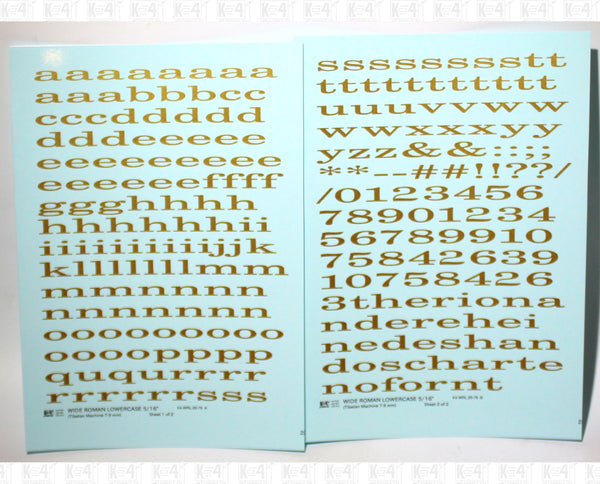 aaaaaaaaa
aaabbbcc
cccddddd
dddeeeee
eeeeeeeee
eeeeeeffff
ggghhhh
hhhhhhii
iiiiiiiiiiijjk
kllllllmm
mmnnnnn
nnnnnnn
ooooooooo
oooopppp
ququrrrr
rrrrrrsss
WIDE ROMAN LOWERCASE 5/16"
(Tibetan Machine 7-9 mm) Sheet 1 of 2
ssssssssstt
ttttttttttt
uuuvvww
wwxxxyy
yzz&&::;;
**--##!!??/
/0123456
78901234
56789910
75842639
10758426
3theriona
nderehei
nedeshan
doscharte
nofornt
WIDE ROMAN LOWERCASE 5/16"
(Tibetan Machine 7-9 mm) Sheet 2 of 2